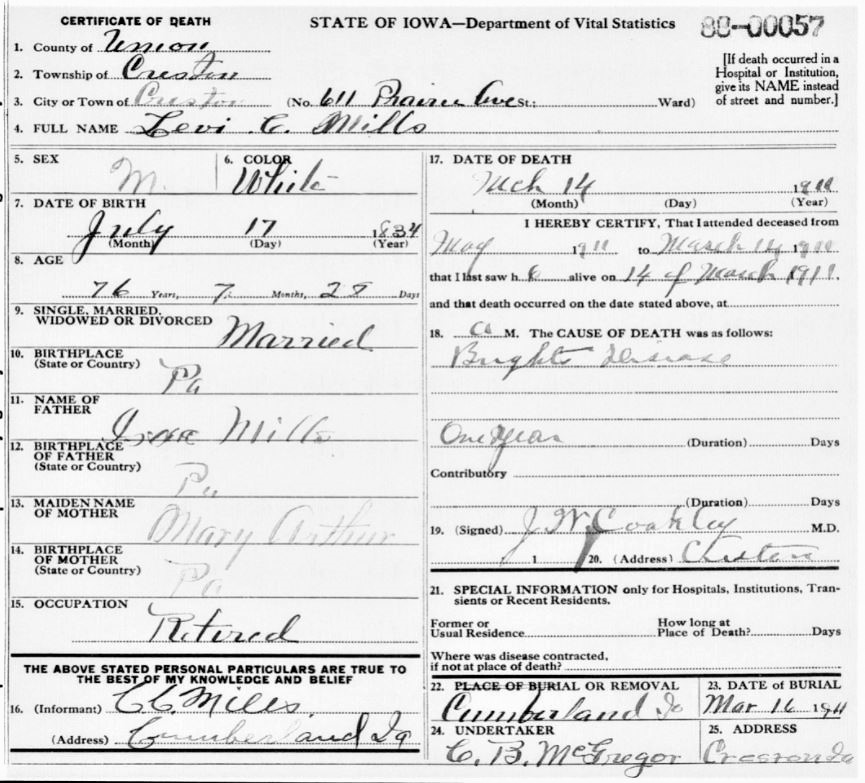 CERTIFICATE OF DEATH
STATE OF IOWA—Department of Vital Statistics
88-00057
1. County of Union
2. Township of Creston
3. City or Town of Creston (No. 611 Prairie Ave St.; Ward)
[If death occurred in a
Hospital or Institution,
give its NAME instead
of street and number.]
4. FULL NAME Levi C. Mills
5. SEX M.
6. COLOR White
7. DATE OF BIRTH
July 17 1834
(Month) (Day) (Year)
8. AGE
76 Years, 7 Months, 28 Days
9. SINGLE, MARRIED,
WIDOWED OR DIVORCED Married
10. BIRTHPLACE
(State or Country) Pa
11. NAME OF
FATHER Mills
12. BIRTHPLACE
OF FATHER
(State or Country) Pa
13. MAIDEN NAME
OF MOTHER Mary Arthur
14. BIRTHPLACE
OF MOTHER
(State or Country) Pa
15. OCCUPATION
Retired
THE ABOVE STATED PERSONAL PARTICULARS ARE TRUE TO
THE BEST OF MY KNOWLEDGE AND BELIEF
16. (Informant) C C Mills
(Address) Cumberland Ia
17. DATE OF DEATH
Mch 14 1911
(Month) (Day) (Year)
I HEREBY CERTIFY, That I attended deceased from
May 1911 to March 14 1911
that I last saw h alive on 14 of March 1911.
and that death occurred on the date stated above, at
18. M. The CAUSE OF DEATH was as follows:
Brights disease
One year (Duration) Days
Contributory
(Duration) Days
19. (Signed) J W Coakley M.D.
1 20. (Address) Creston
21. SPECIAL INFORMATION only for Hospitals, Institutions, Tran-
sients or Recent Residents.
Former or
Usual Residence
How long at
Place of Death? Days
Where was disease contracted,
if not at place of death?
22. PLACE OF BURIAL OR REMOVAL
Cumberland Ia
23. DATE of BURIAL
Mar 16 1911
24. UNDERTAKER
C. B. McGregor
25. ADDRESS
Creston Ia